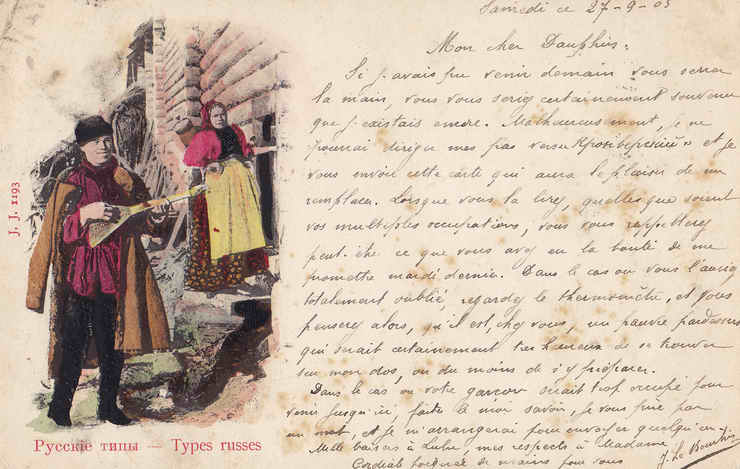 Samedi ce 27-9-03
Mon cher Dauphin.
Si j'avais pu venir demain vous serrer
la main, vous vous seriez certainement souvenu
que j'existais encore. Malheureusement, je ne
pourrai diriger mes pas vers et je
vous envoie cette carte qui aura le plaisir de me
remplacer. Lorsque vous la lirez, quelles que soient
vos multiples occupations, vous vous rappellerez
peut-être ce que vous avez eu la bonté de me
promettre mardi dernier. Dans le cas où vous l'auriez
totalement oublié, regardez le thermomètre, et vous
penserez alors, qu'il est, chez vous, un pauvre pardessus
qui serait certainement très heureux de se trouver
sur mon dos, ou du moins de s'y préparer.
Dans le cas où votre garçon serait trop occupé pour
venir jusqu'ici, faites le moi savoir, je vous prie par
un mot, et je m'arrangerai pour envoyer quelqu'un
Mille baisers à Lulu, mes respects à Madame
Cordiale poignée de mains pour vous
J. J. 1193
Русскіе типы — Types russes